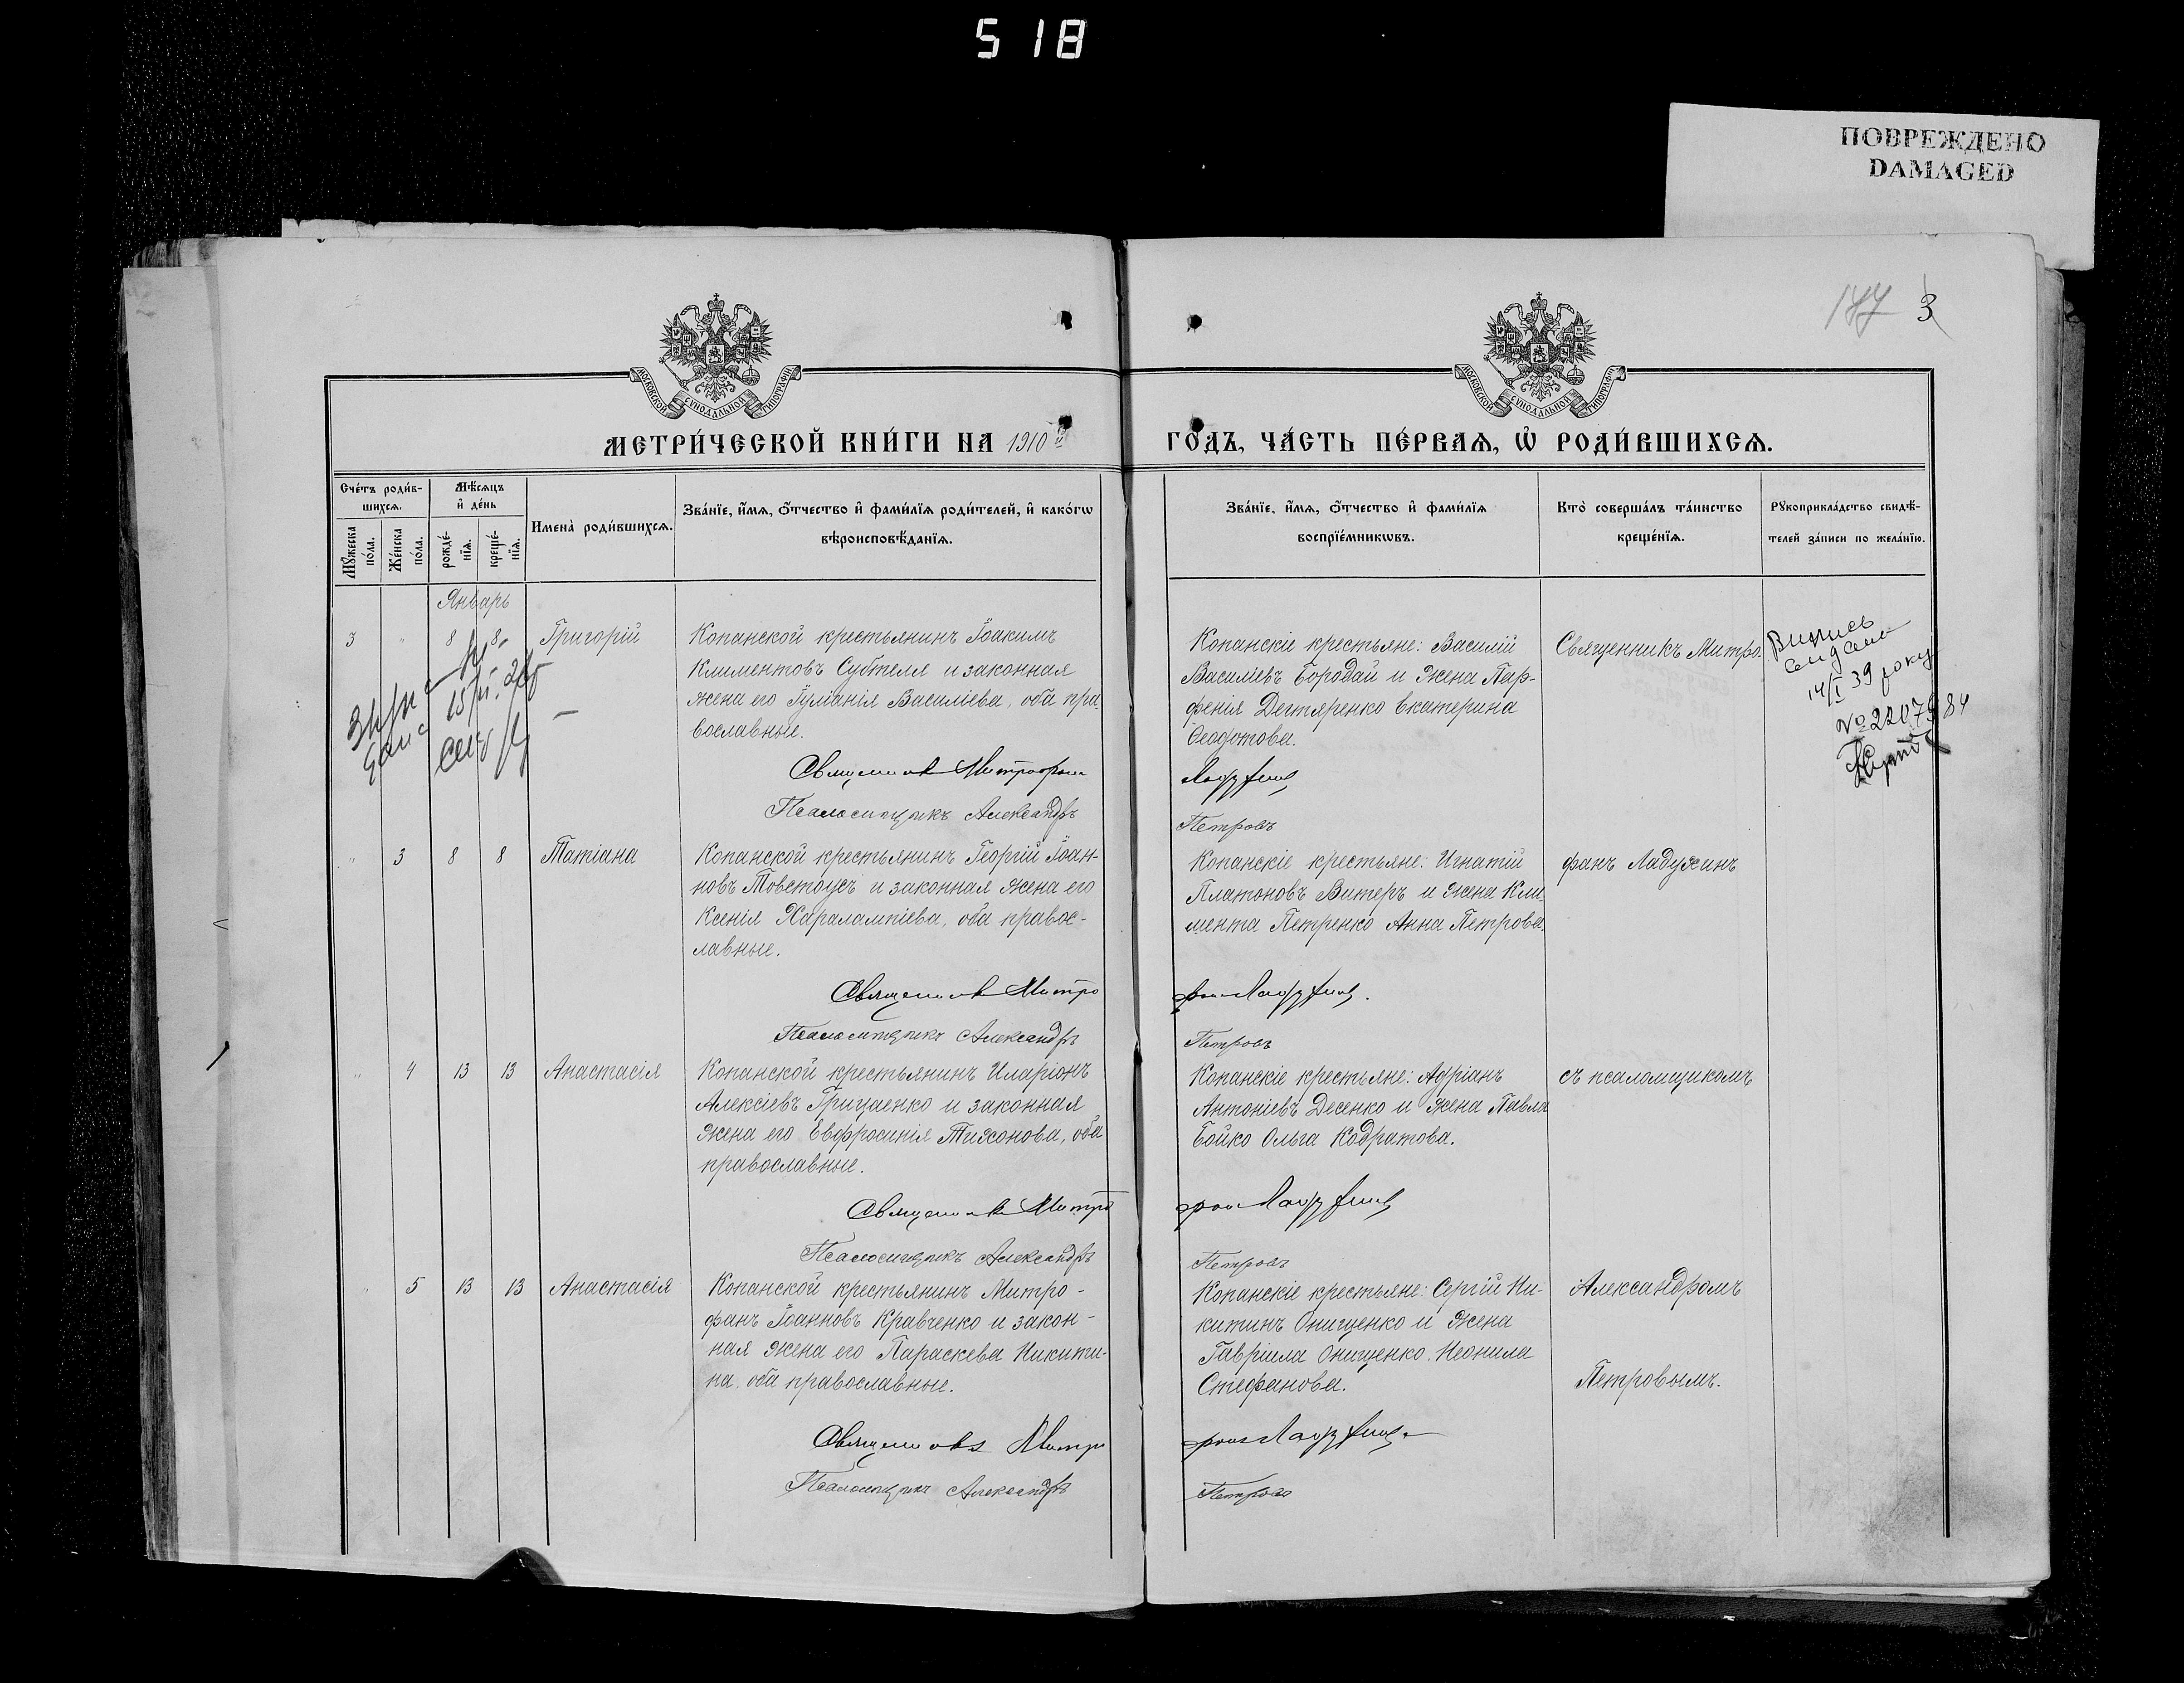 518
ПОВРЕЖДЕНО
DAMAGED
3
МОСКОВСКОЙ СѴНОДАЛЬНОЙ ТИПОГРАФІИ
МОСКОВСКОЙ СѴНОДАЛЬНОЙ ТИПОГРАФІИ
МЕТРИ́ЧЕСКОЙ КНИ́ГИ НА 1910й
ГО́ДЪ, ЧА́СТЬ ПЕ́РВАѦ, Ѡ҆ РОДИ́ВШИХСѦ.
Сче́тъ роди́в-
шихсѧ.
Мѣ́сѧцъ
и҆ де́нь
Мꙋ́жеска
по́ла.
Же́нска
по́ла.
рожде́-
нїѧ.
креще́-
нїѧ.
Имена̀ роди́вшихсѧ.
Зва́нїе, и҆́мѧ, ѻ҆́тчество и҆ фами́лїѧ роди́телей, и҆ како́гѡ
вѣроисповѣ́данїѧ.
Зва́нїе, и҆́мѧ, ѻ҆́тчество и҆ фами́лїѧ
воспрїе́мникѡвъ.
Кто̀ соверша́лъ та́инство
креще́нїѧ.
Рꙋкоприкла́дство свидѣ́-
телей за́писи по жела́нїю.
Январь
3 " 8 8 Григорій
Копанской крестьянинъ Іоакимъ
Климентовъ Субтеля и законная
жена его Іуліанія Васильева, оба пра-
вославные.
Священникъ Митрофанъ
Псаломщикъ Александръ
Копанскіе крестьяне: Василій
Васильевъ Бородай и жена Пар-
фенія Дегтяренко Екатерина
Феодотова.
Ладужинъ
Петровъ
Священникъ Митро-
Выпись
видана
14/I 39 року
№ 2207984
" 3 8 8 Татіана
Копанской крестьянинъ Георгій Іоан-
новъ Товстоусъ и законная жена его
Ксенія Харалампіева, оба правос-
лавные.
Священникъ Митро
Псаломщикъ Александръ
Копанскіе крестьяне: Игнатій
Платоновъ Витеръ и жена Кли-
мента Петренко Анна Петрова.
фанъ Ладужинъ.
Петровъ
фанъ Ладужинъ
" 4 13 13 Анастасія
Копанской крестьянинъ Иларіонъ
Алексіевъ Грицаенко и законная
жена его Евфросинія Тихонова, оба
православные.
Священникъ Митро
Псаломщикъ Александръ
Копанскіе крестьяне: Адріанъ
Антоніевъ Десенко и жена Павла
Бойко Ольга Кодратова.
фанъ Ладужинъ
Петровъ
съ псаломщикомъ
" 5 13 13 Анастасія
Копанской крестьянинъ Митро-
фанъ Іоанновъ Кравченко и закон-
ная жена его Параскева Никити-
на, оба православные.
Священникъ Митро
Псаломщикъ Александръ
Копанскіе крестьяне: Сергій Ни-
китинъ Онищенко и жена
Гавріила Онищенко Неонила
Стефанова.
фанъ Ладужинъ
Петровъ
Александромъ
Петровымъ.